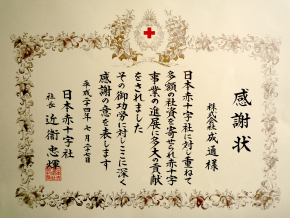 感謝状
株式会社成通様
日本赤十字社に対し重ねて
多額の社資を寄せられ赤十字
事業の進展に多大の貢献
をされました
その御功労に対しここに深く
感謝の意を表します
平成二十四年七月二十七日
日本赤十字社
社長 近衞忠煇